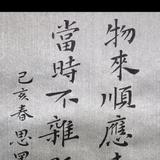 物來順應
當時不雜
己亥春思